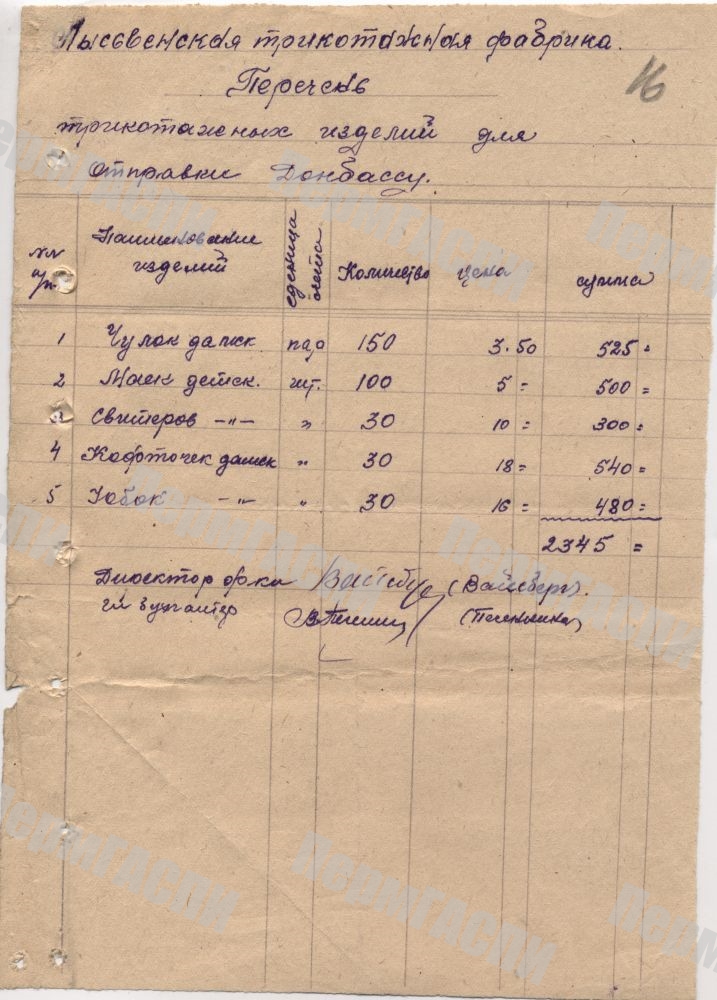 Лысьвенская трикотажная фабрика.
16
Перечень
трикотажных изделий для
отправки Донбассу.
№№ п/п Наименование изделий единица счета Количество цена сумма
1 Чулок дамск. пар 150 3.50 525=
2 Маек детск. шт. 100 5= 500=
3 Свитеров -"- " 30 10= 300=
4 Кофточек дамск " 30 18= 540=
5 Юбок -"- " 30 16= 480=
2345=
Директор ф-ки (Вайсберг).
гл бухгалтер
ПермГАСПИ